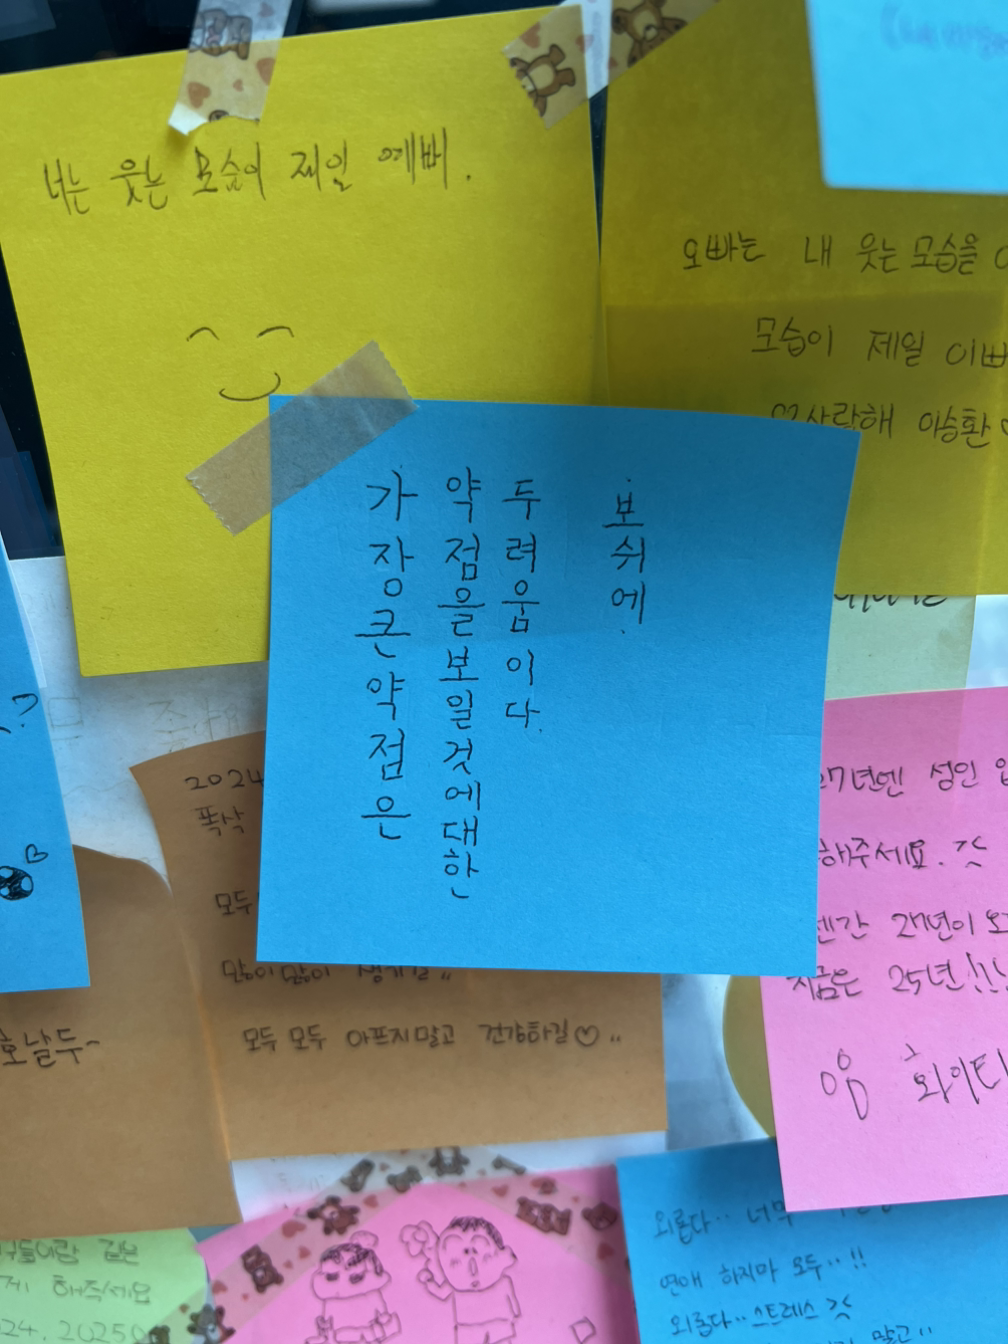 너는 웃는 모습이 제일 예뻐.
오빠는 내 웃는모습을
모습이 제일 이쁘
사랑해 이승환♡
가장큰약점은
약점을보일것에대한
두려움이다.
보쉬에.
2024
폭삭
모두
많이많이 생기길
모두 모두 아프지말고 건강하길♡..
호날두~
27년엔 성인
해주세요.
2년이
지금은 25년!!!
화이티
외롭다.. 너무
연애 하지마 모두..!!
외롭다.. 스트레스
말고
같은
해주세요
2025